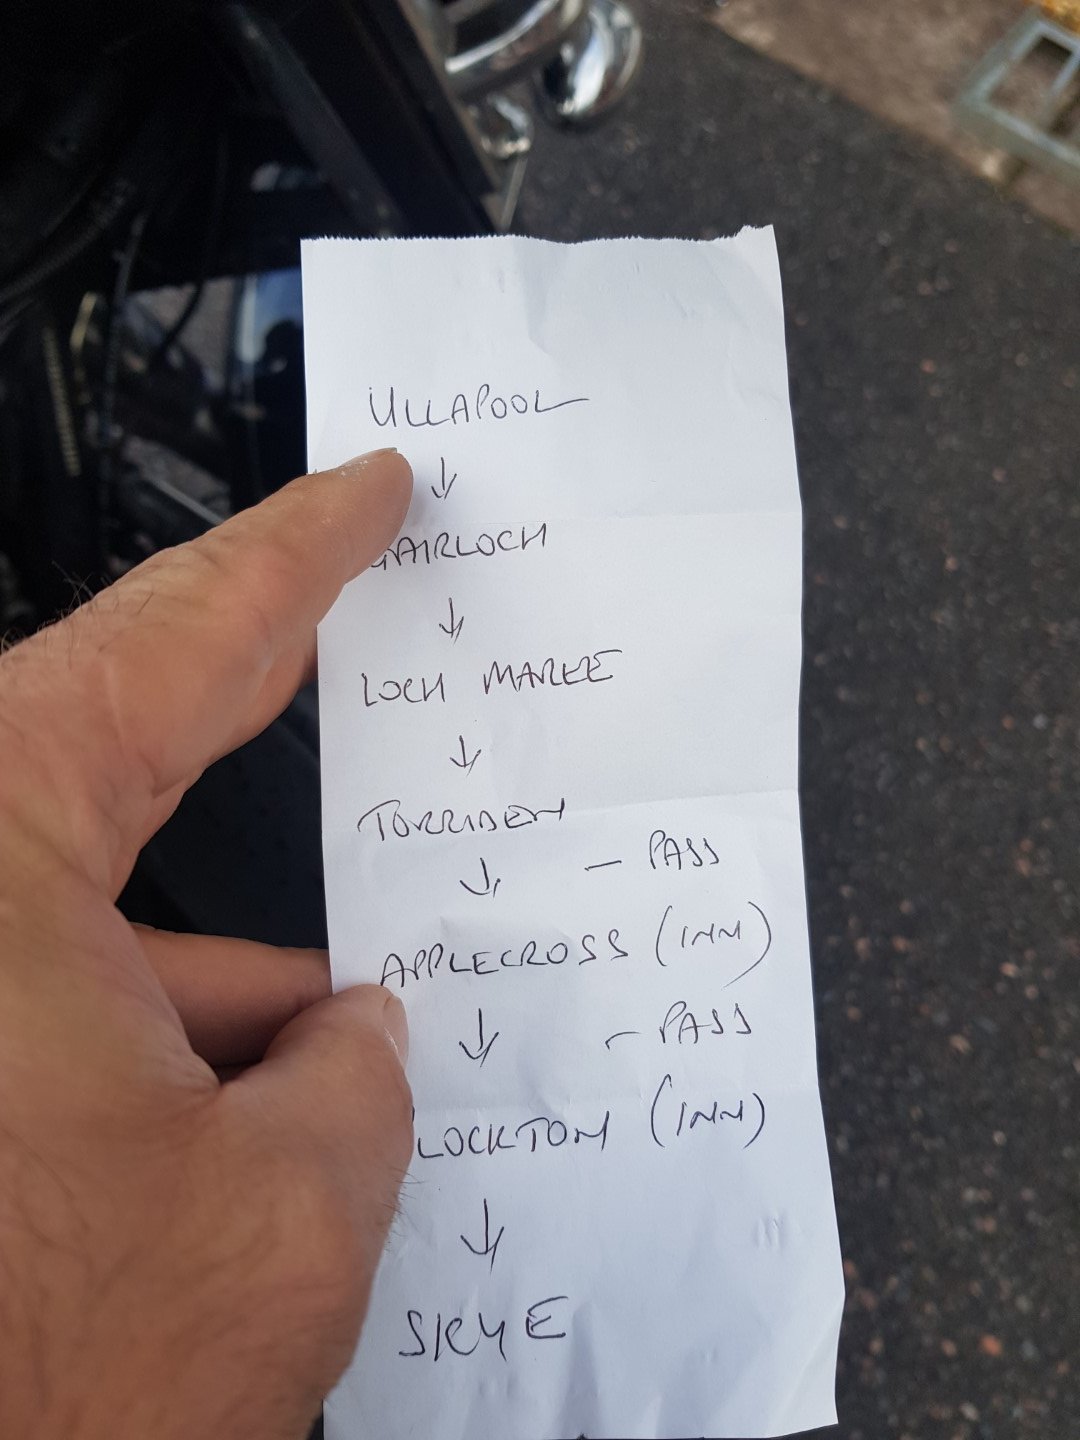 ULLAPOOL
↓
GAIRLOCH
↓
LOCH MAREE
↓
TORRIDEN
↓ — PASS
APPLECROSS (INN)
↓ — PASS
PLOCKTON (INN)
↓
SKYE